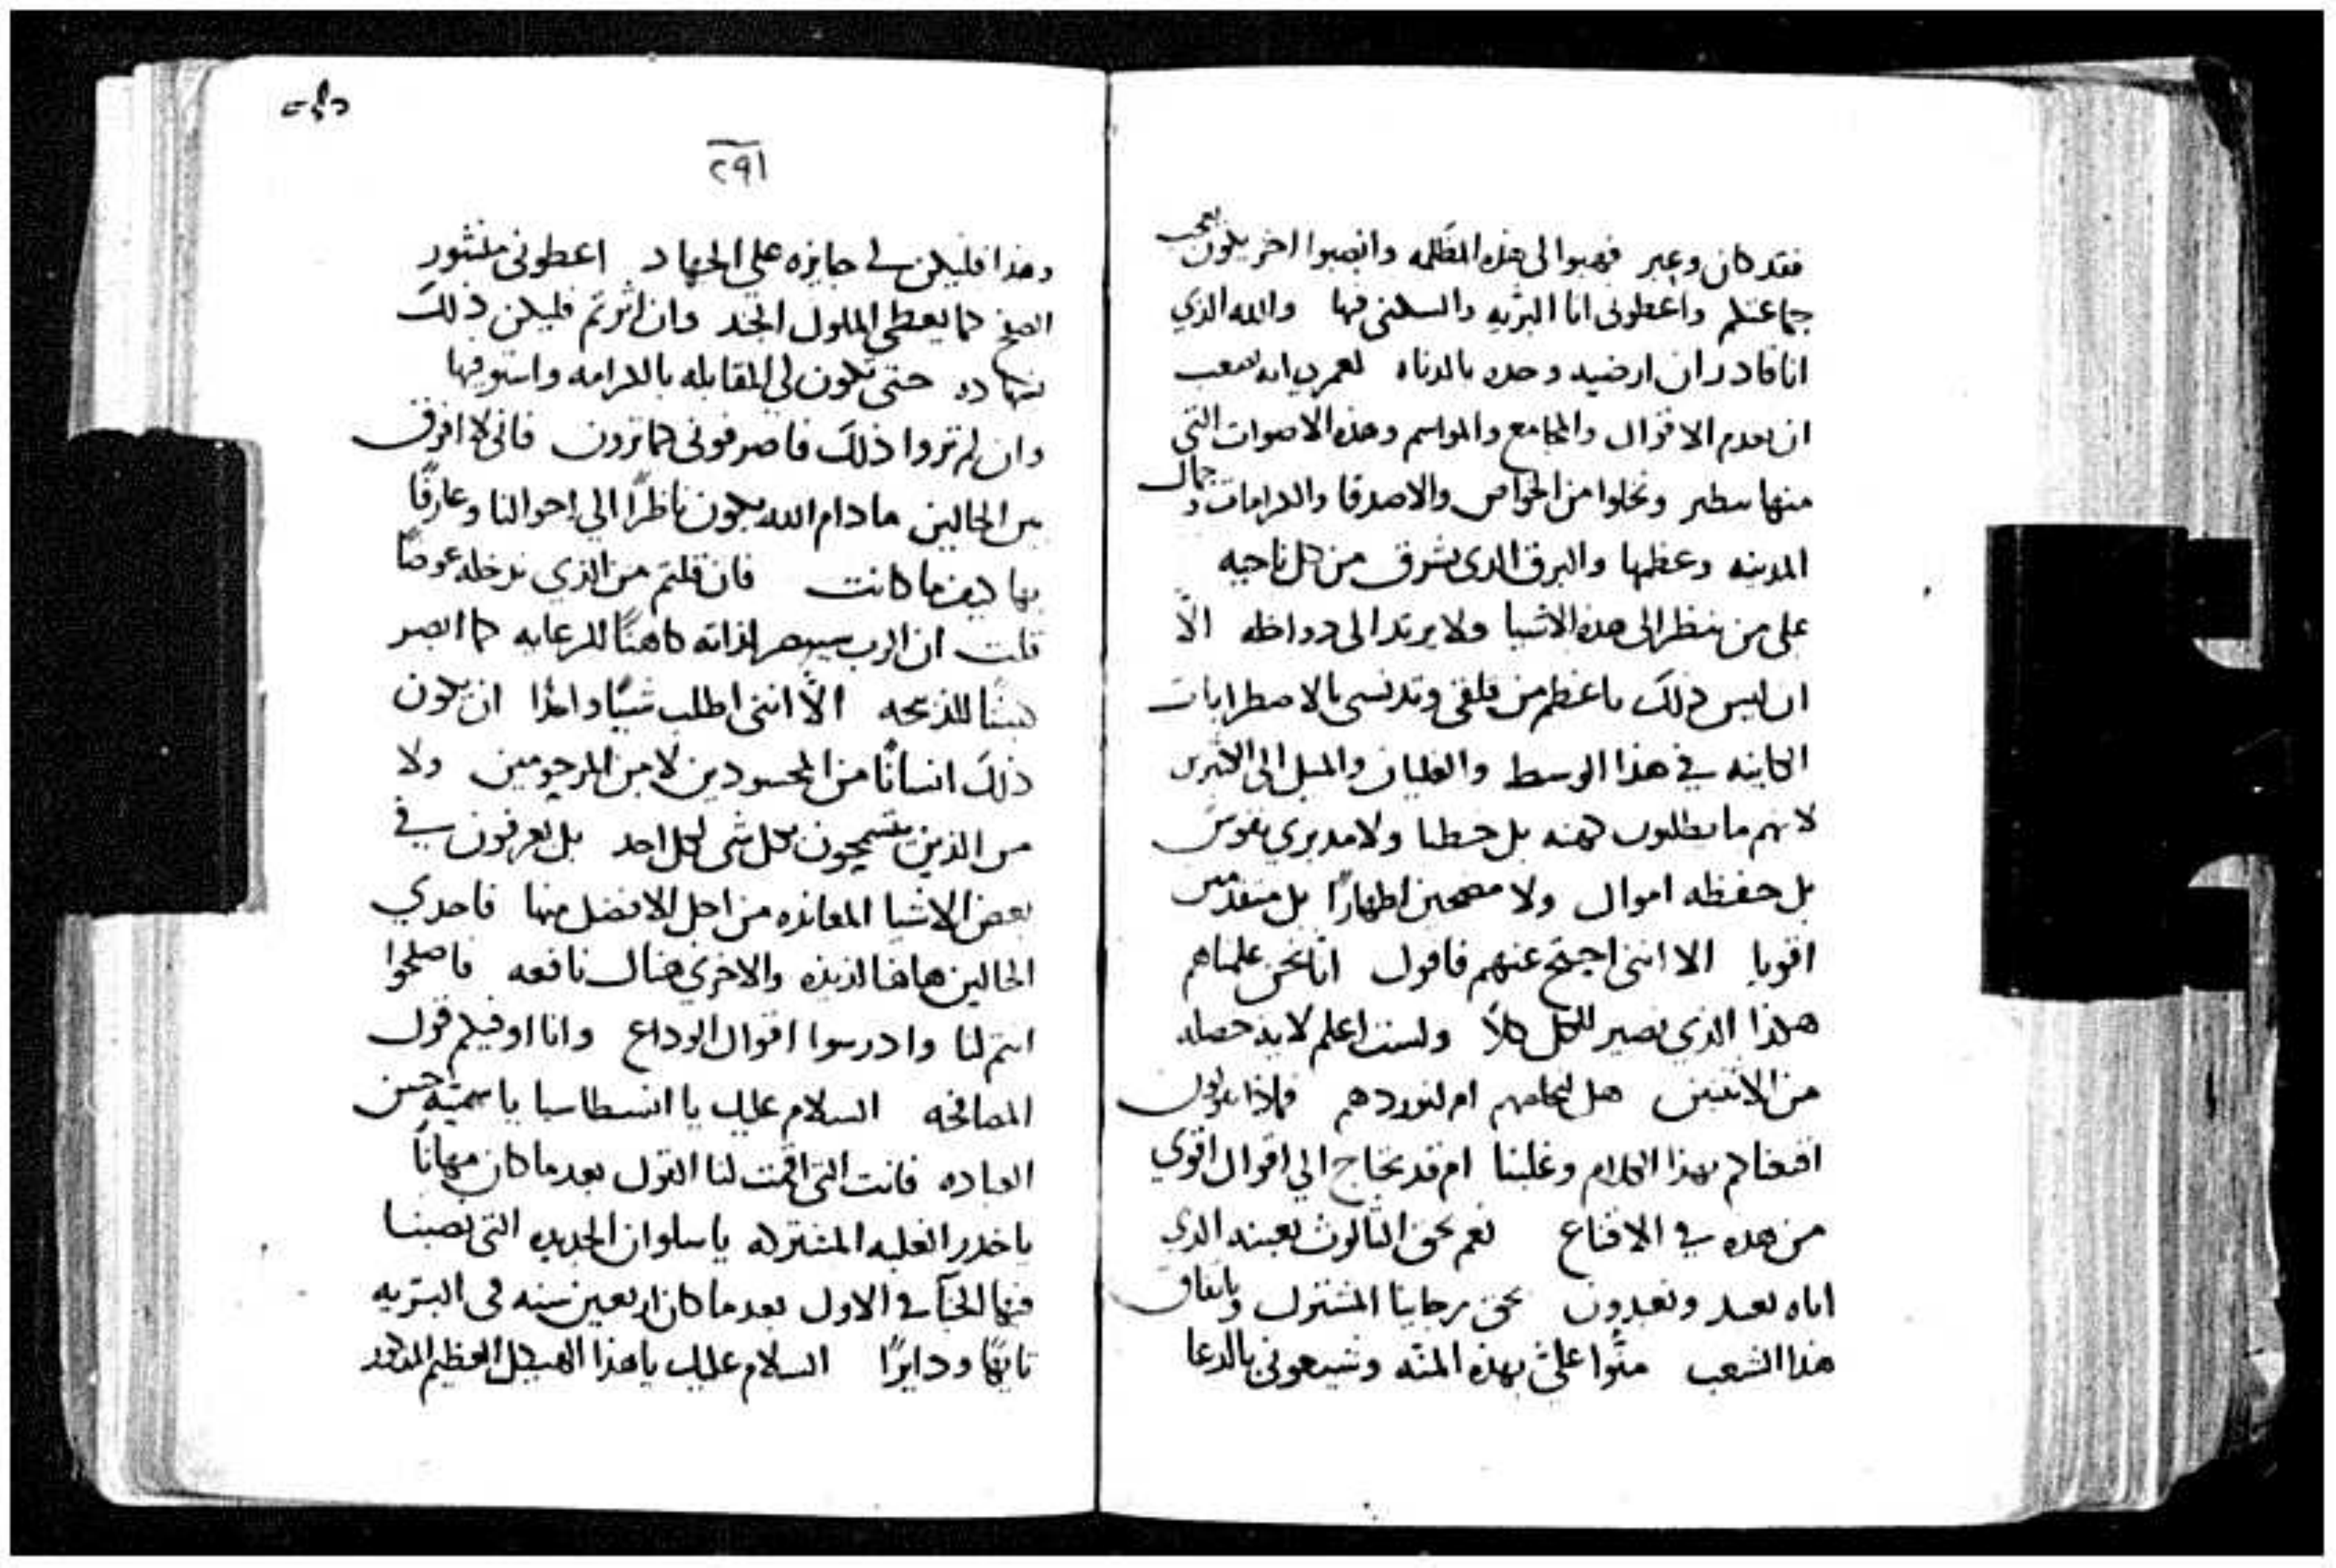 فقد كان وعبر فهبوا لي هذه المظلمه وانصبوا اخر يكون يعجب
جماعتكم واعطوني انا البريه والسكنى فيها والله الذي
انا قادر ان ارضيه وحده بالدناه لعمري انه صعب
ان نعدم الاقوال والمجامع والمواسم وهذه الاصوات التي
منها نطير ونخلوا من الخواص والاصدقا والكرامات وجمال
المدينه وعظمها والبرق الذي يشرق من كل ناحيه
على من ينظر الى هذه الاشيا ولا يرتد الى داخله الّا
ان ليس ذلك باعظم من قلقي وتدنسي بالاضطرابات
الكاينه في هذا الوسط والغليان والميل الى الاكثرين
لانهم ما يطلبون كهنه بل خطبا ولا مدبري نفوس
بل حفظه اموال ولا مضحيين اطهارًا بل متقدمين
اقويا الا انني احتج عنهم فاقول انّا نحن علمناهم
هكذا الذي نصير للكل كلًا ولست اعلم لايه خصله
من الاثنين هل لخلاصهم ام لنوردهم فماذا تقولون
اقنعناكم بهذا الكلام وغلبنا ام قد نحتاج الي اقوال اقوي
من هذه في الاقناع نعم بحق الثالوث بعينه الذي
اياه نعبد وتعبدون بحق رجاينا المشترك وباتفاق
هذا الشعب منّوا عليّ بهذه المنّه وشيعوني بالدعا
٢٩١
وهذا فليكن لي جايزه علي الجهاد اعطوني منشور
الصفح كما يعطي الملوك الجند وان اثرتم فليكن ذلك
بشهاده حتى تكون لي المقابله بالكرامه واستوفيها
وان لم تروا ذلك فاصرفوني كما ترون فاني لا افرق
بين الحالين ما دام الله يكون ناظرًا الي احوالنا وعارفًا
بها كيف ما كانت فان قلتم من الذي ندخله عوضًا
قلت ان الرب سيبصر لذاته كاهنًا للرعايه كما ابصر
كبشًا للذبيحه الّا انني اطلب شيًا واحدًا ان يكون
ذلك انسانًا من المحسودين لا من المرحومين ولا
من الذين يسمحون بكل شي لكل احد بل يعرفون في
بعض الاشيا المعانده من اجل الافضل منها فاحدي
الحالين هاهنا لذيذه والاخري هناك نافعه فاصلحوا
انتم لنا وادرسوا اقوال الوداع وانا اوفيكم قول
المصافحه السلام عليك يا انسطاسيا يا سميّه حسن
العباده فانت التي اقمت لنا القول بعد ما كان مهانًا
يا خدر الغلبه المشتركه يا سلوان الجديده التي نصبنا
فيها الخبآ في الاول بعد ما كان اربعين سنه في البريه
تايهًا ودايرًا السلام عليك يا هذا الهيكل العظيم المذكور